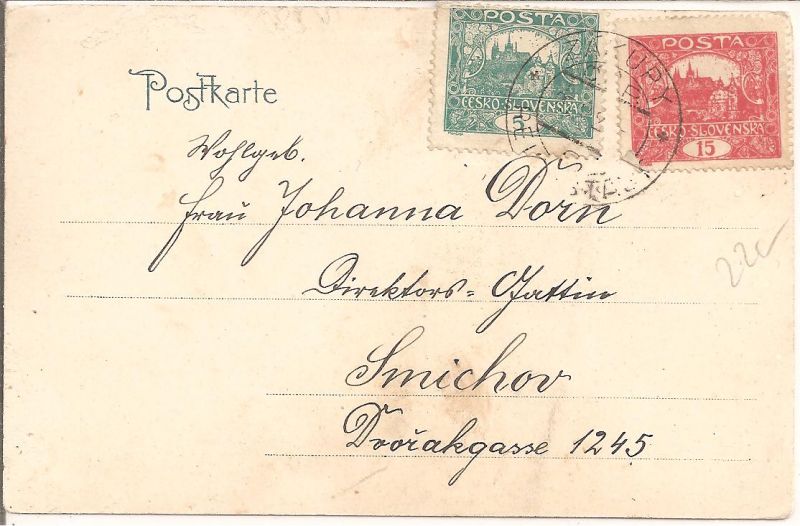 POSTA
ČESKO-SLOVENSKÁ
5
POSTA
ČESKO-SLOVENSKÁ
15
Postkarte
Wohlgeb.
Frau Johanna Dorn
Direktors-Gattin
Smichov
Dvořakgasse 1245